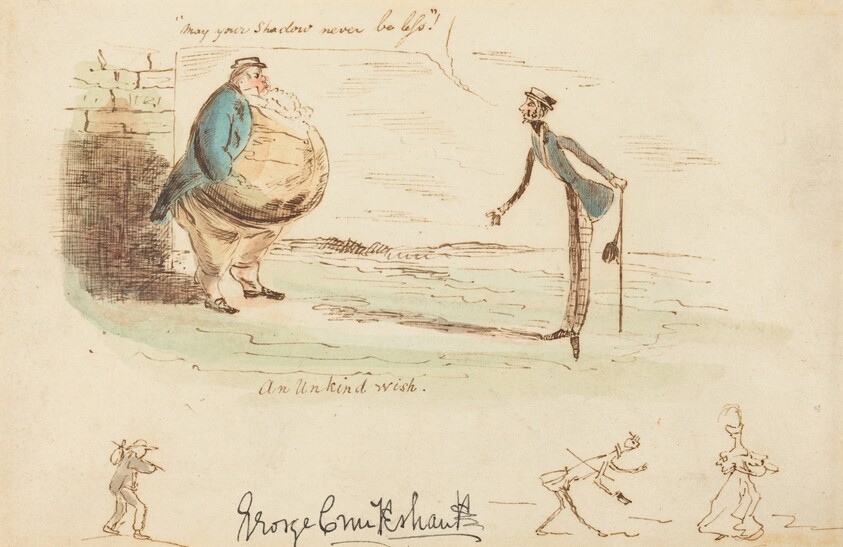 "May your Shadow never be less"!
An Unkind wish.
George Cruikshank